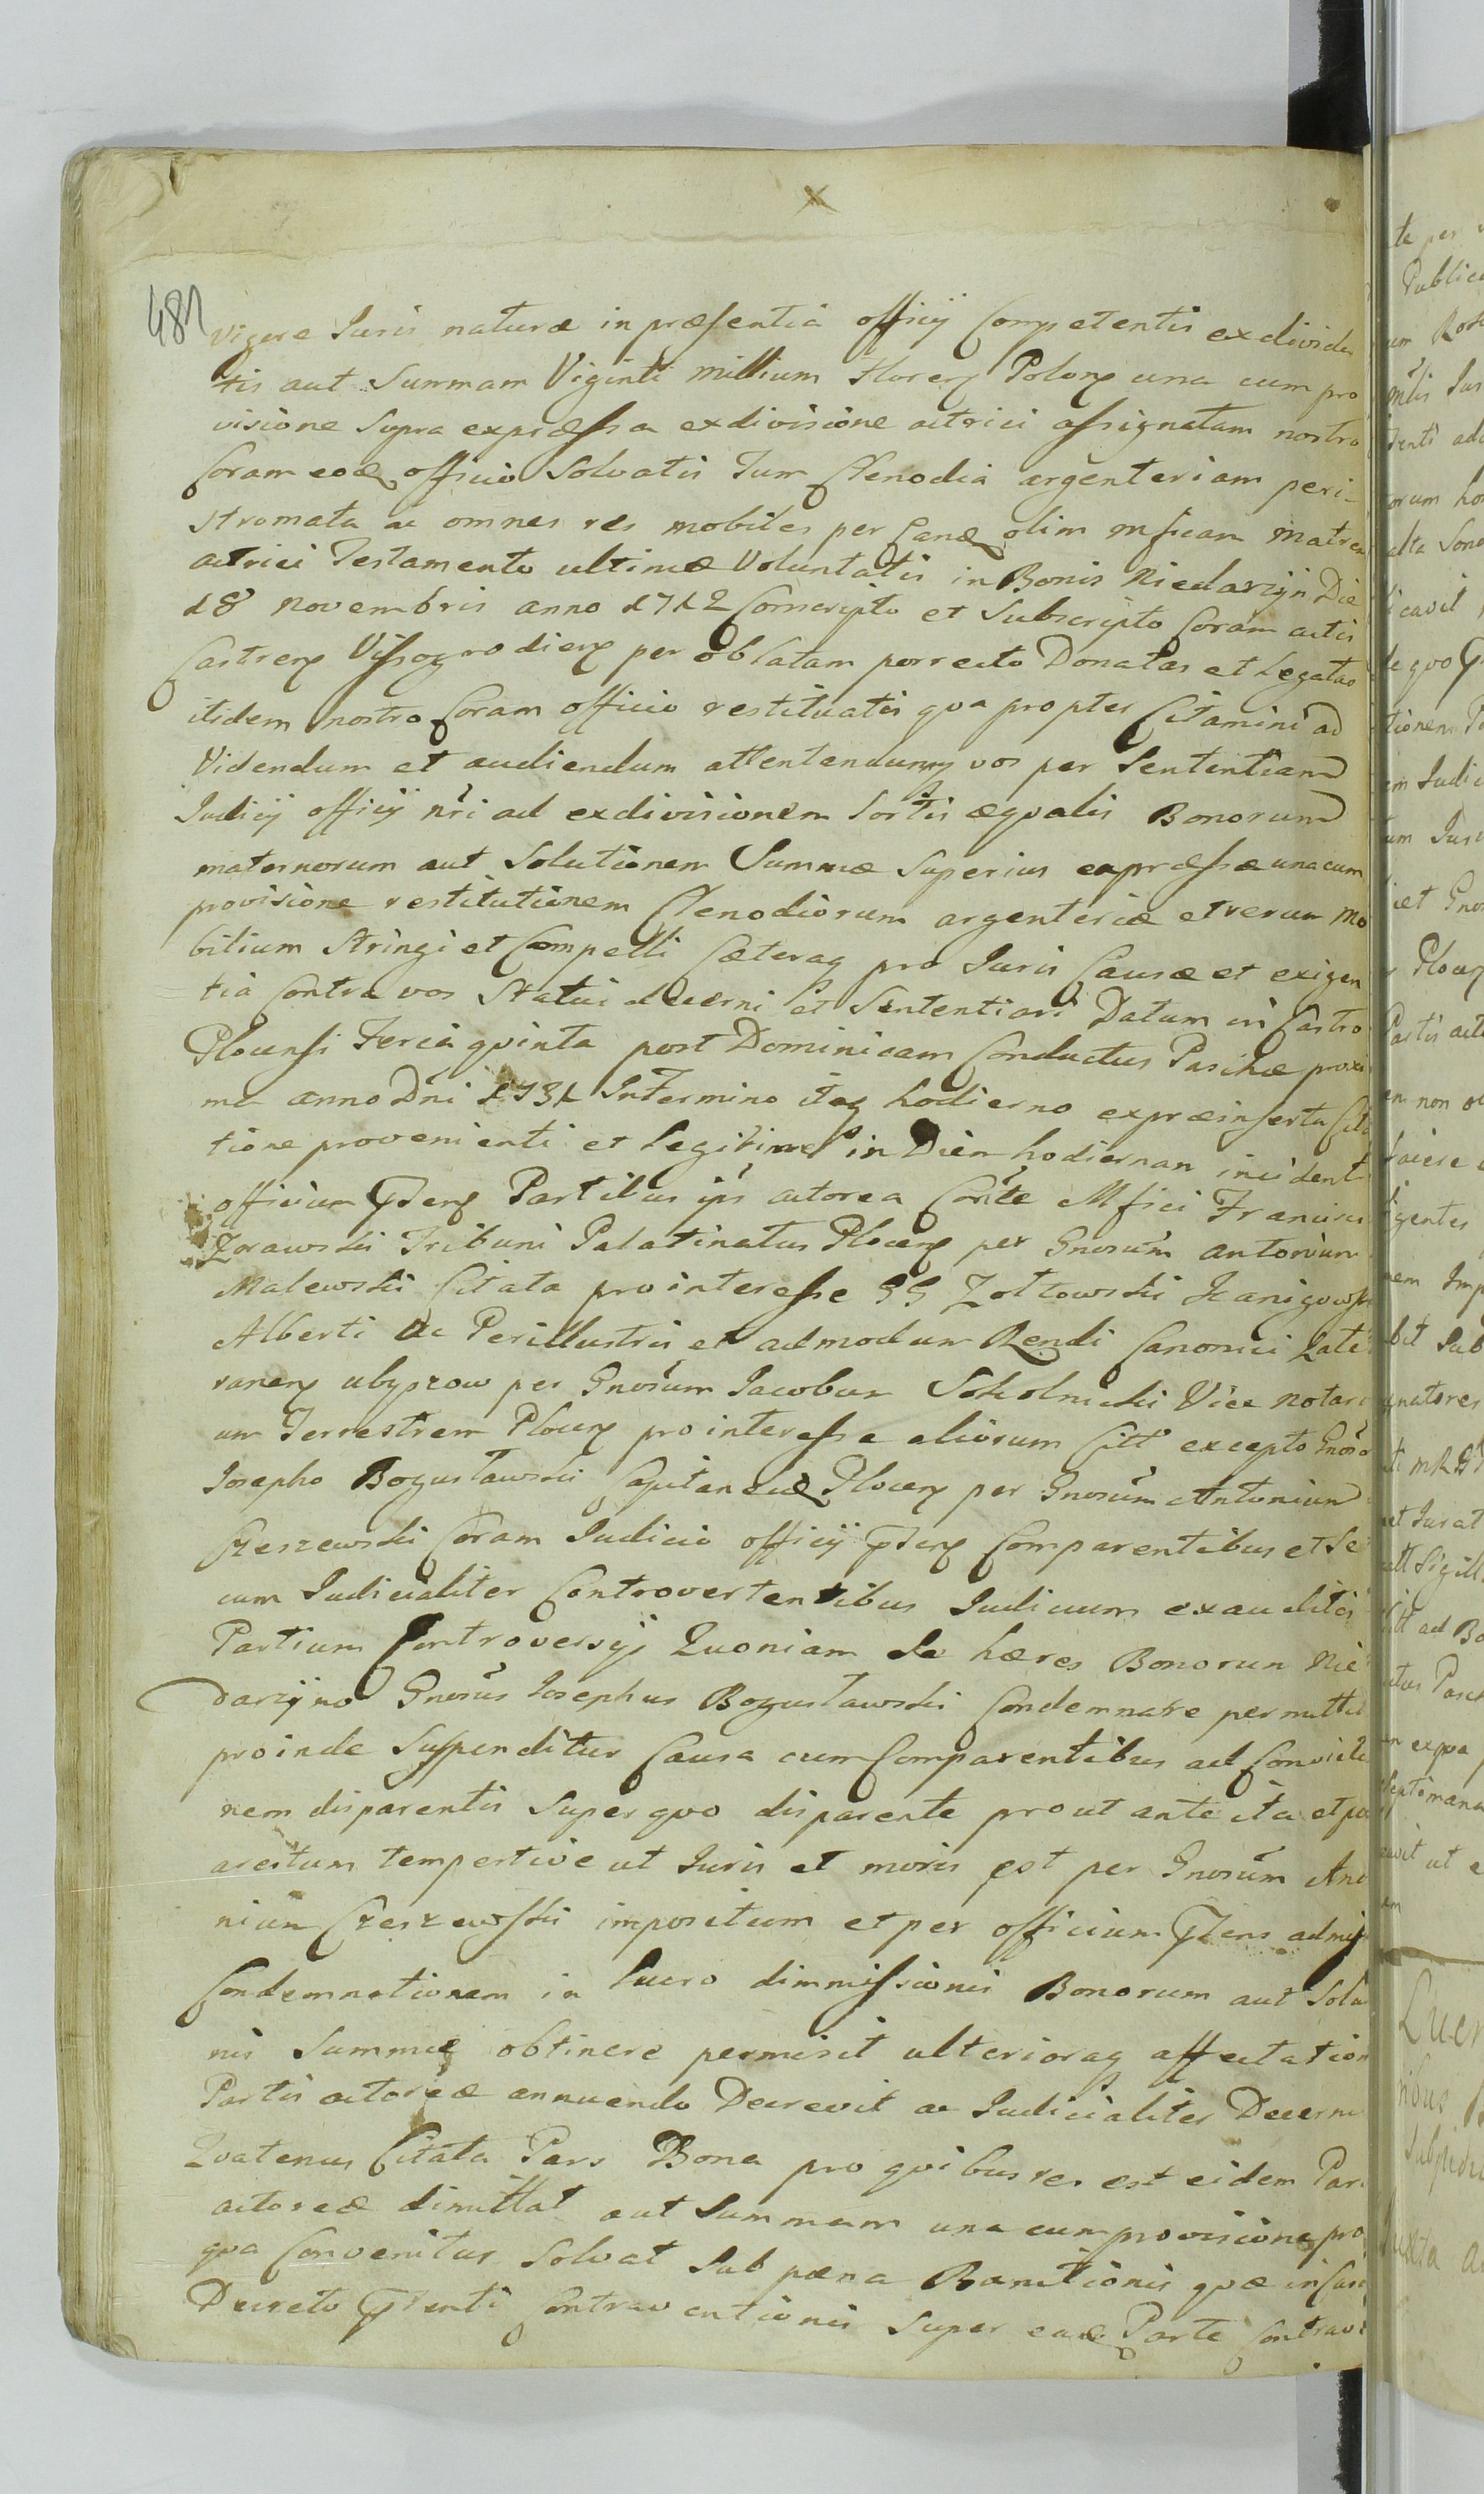 481
vigere Iuris naturæ in præsentia officij Competentis exdivida
tis aut Summam Viginti millium Floren Polon una cum pro
visione supra expressa exdivisione actrici assignatam nostro
Coram eodē officio Solvatis Tum Clenodia argenteriam peri-
stromata ac omnes res mobiles per eandē olim Mficam Matrem
actrici Testamento ultimæ Voluntatis in Bonis Niedarzijn Die
18 Novembris anno 1712 Conscripto et Subscripto Coram actis
Castren Vissogrodien per oblatam porrecto Donatas et Legatas
itidem nostro Coram officio restituatis qva propter Citamini ad
Videndum et audiendum attentandumq vos per Sententiam
Iudicij officij nri ad exdivisionem Sortis æqvalis Bonorum
maternorum aut Solutionem Summæ Superius expressæ una cum
provisione restitutionem Clenodiorum argenteriæ et rerum mo
bilium Stringi et Compelli Cæteraq pro Iuris Causæ et exigen
tia Contra vos Statui decerni et Sententiari Datum in Castro
Plocensi Feria qvinta post Dominicam Conductus Paschæ proxi
ma anno Dni 1731 In Termino itaq hodierno ex præinserta Cita
tione provenienti et legitime in Diem hodiernam incident
officium Pttens Partibus ipis actorea Conte Mfici Francisci
Zorawski Tribuni Palatinatus Plocen per Gnosum Antonium
Malewski Citata pro interesse GG Zoltowski
Alberti Ac Perillustris et admodum Rendi Canonici Late
ranen ubyszow per Gnosum Iacobum Sokolnicki Vice Notari
um Terrestrem Plocen pro interesse aliorum Citt excepto Gnoso
Iosepho Bogusławski Capitaneidē Plocen per Gnosum Antonium
Czeszewski Coram Iudicio officij Pttens Comparentibus et Se
cum Iudicialiter Controvertentibus Iudicium exauditis
Partium Controversijs Qvoniam Se hæres Bonorum Nie
darzijno Gnosus Iosephus Bogusławski Condemnare permittit
proinde Suspenditur Causa cum Comparentibus ad Convictio
nem disparentis Super qvo disparente prout ante ita et
arestum tempestive ut Iuris et moris est per Gnosum Anto
nium Czeszewski impositum et per officium Pttens admis
Condemnationem in lucro dimmissionis Bonorum aut Solu
nis Summæ obtinere permisit ulterioraq affectation
Partis actoreæ annuendo Decrevit ac Iudicialiter Decerni
Qvatenus Citata Pars Bona pro qvibus res est eidem Par
actoreæ dimittat aut Summam una cum provisione pro
qva Convenitur Solvat Sub pæna Banitionis qvæ in Casu
Decreto Pttenti Contraventionis Super eadē Parte Contrav